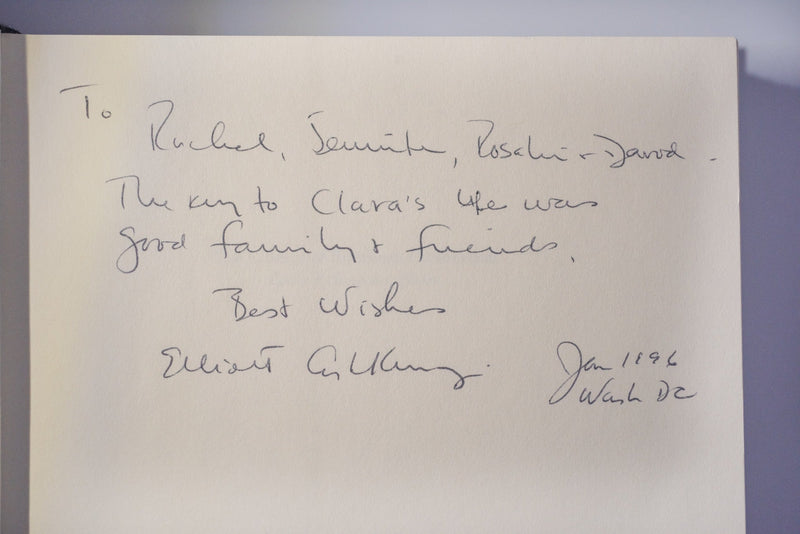 To
Rachel, Jennifer, Rosalie + David.
The key to Clara's life was
good family & friends.
Best Wishes
Elliott
Jan 1996
Wash DC